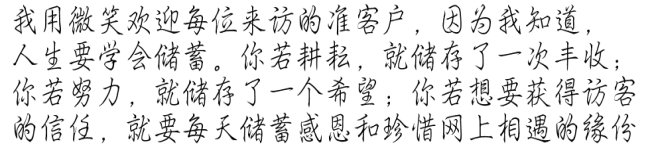 我用微笑欢迎每位来访的准客户，因为我知道，
人生要学会储蓄。你若耕耘，就储存了一次丰收；
你若努力，就储存了一个希望；你若想要获得访客
的信任，就要每天储蓄感恩和珍惜网上相遇的缘份